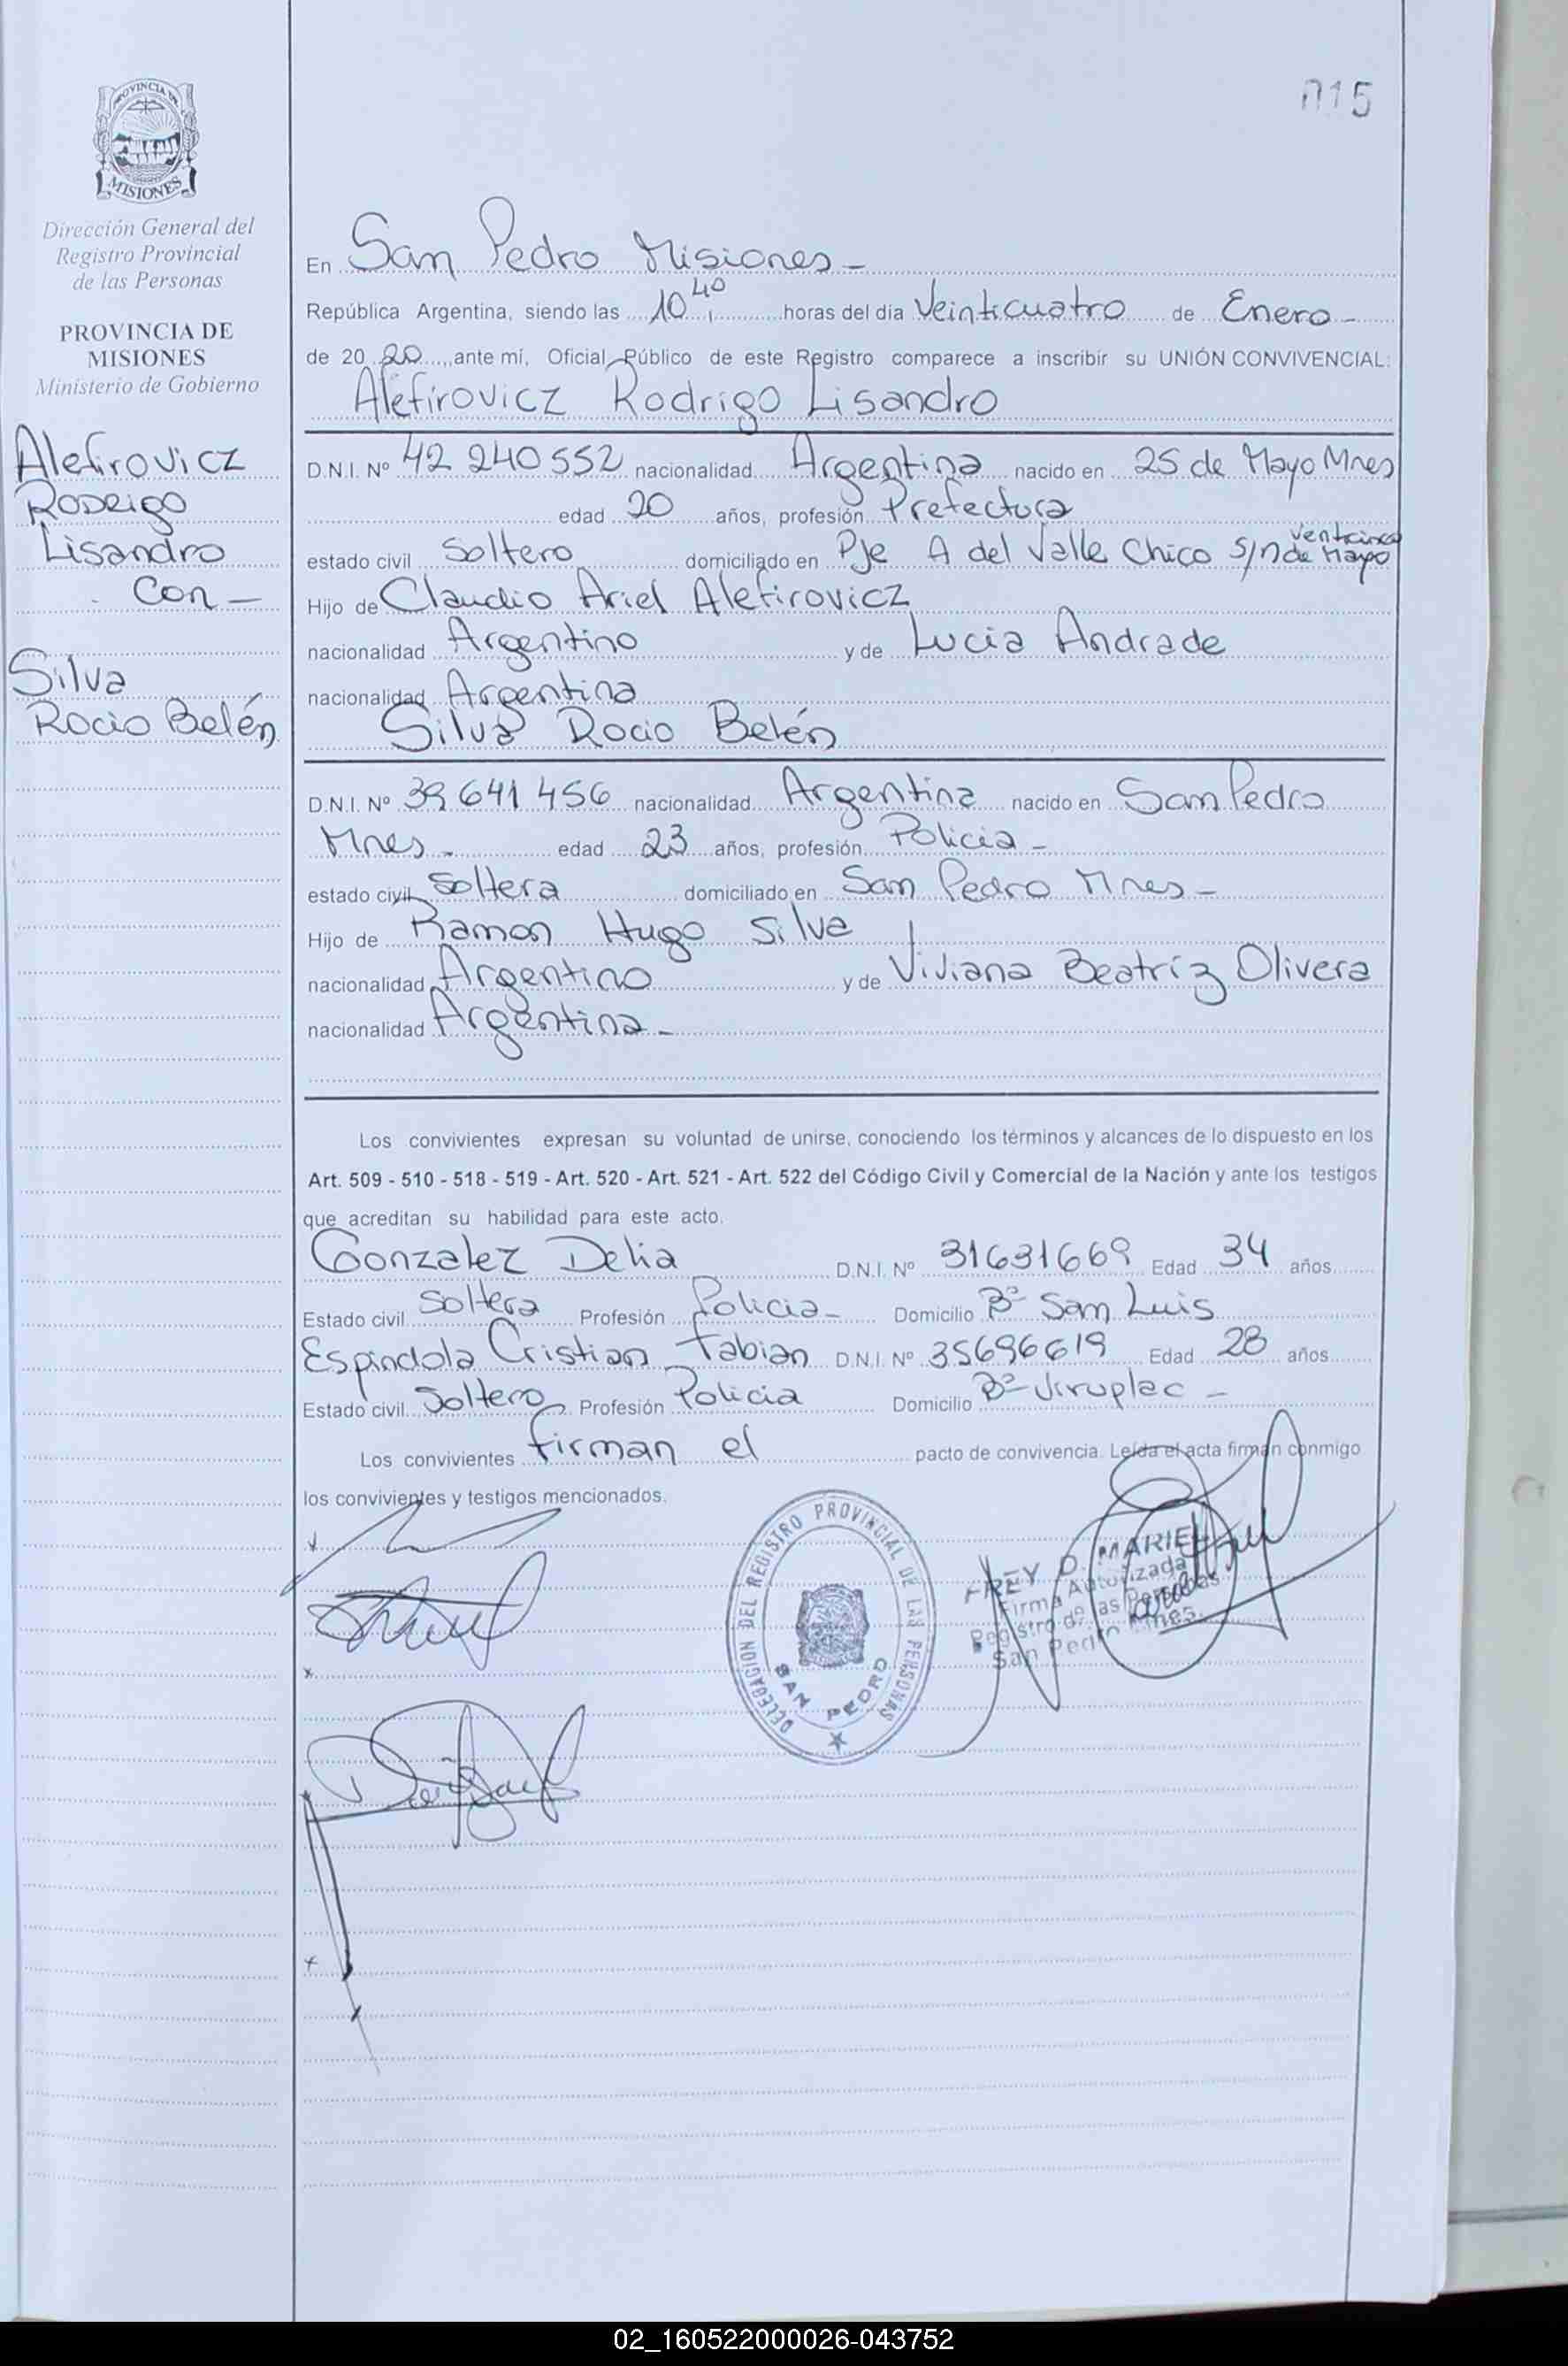 015
PROVINCIA DE
MISIONES
Dirección General del
Registro Provincial
de las Personas
PROVINCIA DE
MISIONES
Ministerio de Gobierno
Alefirovicz
Rodrigo
Lisandro
Con -
Silva
Rocio Belén
En San Pedro Misiones -
República Argentina, siendo las 10,40 horas del día Veinticuatro de Enero -
de 20 20 ,ante mí, Oficial Público de este Registro comparece a inscribir su UNIÓN CONVIVENCIAL:
Alefirovicz Rodrigo Lisandro
D.N.I. Nº 42 240 552 nacionalidad Argentina nacido en 25 de Mayo Mnes
edad 20 años, profesión Prefectura
estado civil Soltero domiciliado en Pje A del Valle Chico S/n de Mayo
Hijo de Claudio Ariel Alefirovicz
nacionalidad Argentino y de Lucia Andrade
nacionalidad Argentina
Silva Rocio Belén
D.N.I. Nº 39 641 456 nacionalidad Argentina nacido en San Pedro
Mnes - edad 23 años, profesión Policia -
estado civil Soltera domiciliado en San Pedro Mnes -
Hijo de Ramon Hugo Silva
nacionalidad Argentino y de Viviana Beatríz Olivera
nacionalidad Argentina -
Los convivientes expresan su voluntad de unirse, conociendo los términos y alcances de lo dispuesto en los
Art. 509 - 510 - 518 - 519 - Art. 520 - Art. 521 - Art. 522 del Código Civil y Comercial de la Nación y ante los testigos
que acreditan su habilidad para este acto.
Gonzalez Delia D.N.I. Nº 31631669 Edad 34 años
Estado civil Soltera Profesión Policia - Domicilio Bº San Luis
Espindola Cristian Fabian D.N.I. Nº 35696619 Edad 28 años
Estado civil Soltero Profesión Policia Domicilio Bº Viruplac -
Los convivientes firman el pacto de convivencia. Leída el acta firman conmigo
los convivientes y testigos mencionados.
DELEGACION DEL REGISTRO PROVINCIAL DE LAS PERSONAS
SAN PEDRO
FREY D. MARIEL
Firma Autorizada
Registro de las Personas
San Pedro Mnes.
02_160522000026-043752